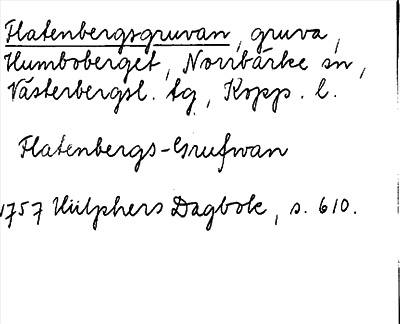 Flatenbergsgruvan, gruva,
Humboberget, Norrbärke sn,
Västerbergsl. tg., Kopp. l.
Flatenbergs-Grufwan
1757 Hülphers Dagbok, s. 610.